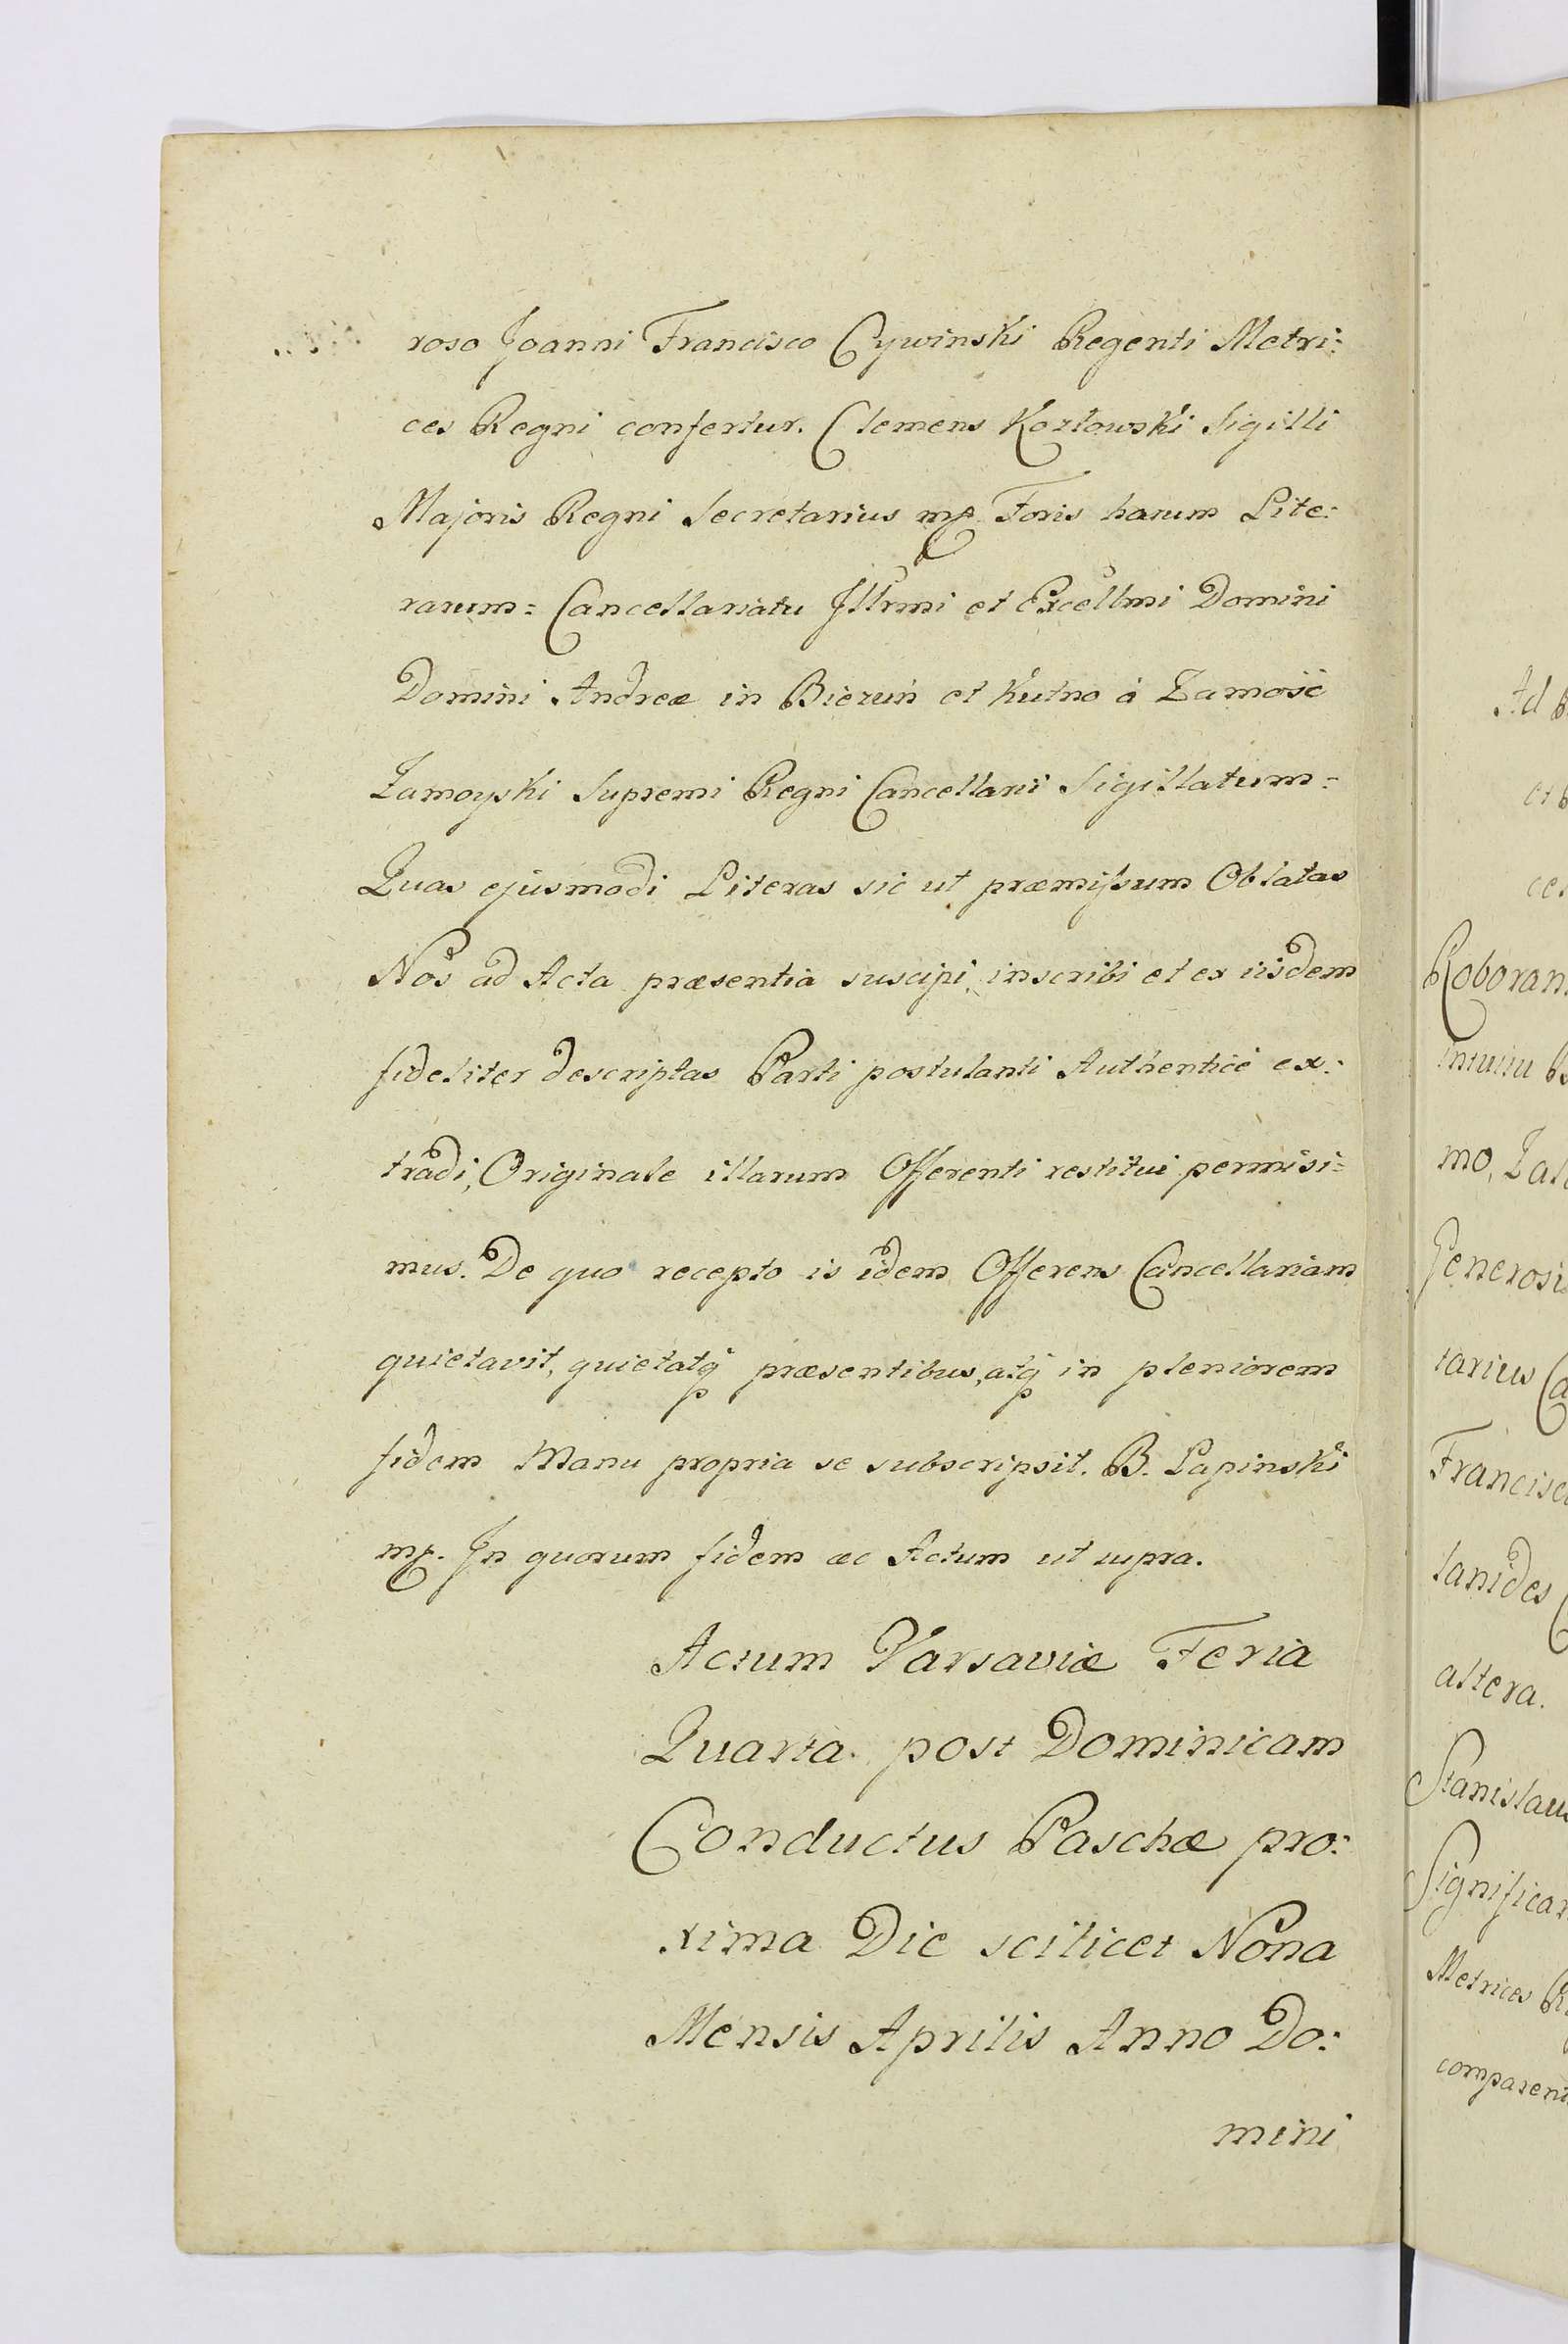 roso Joanni Francisco Cywinski Regenti Metri:
ces Regni confertur. Clemens Kozłowski Sigilli
Majoris Regni Secretarius mp. Foris harum Lite:
rarum: Cancellariatu Jllrmi et Excellmi Domini
Domini Andreæ in Bieżuń et Kutno à Zamość
Zamoyski Supremi Regni Cancellarii Sigillatum:
Quas ejusmodi Literas sic ut præmissum Oblatas
Nos ad Acta præsentia suscipi, inscribi et ex iisdem
fideliter descriptas Parti postulanti Authentice ex:
tradi, Originale illarum Offerenti restitui permisi:
mus. De quo recepto is idem Offerens Cancellariam
quietavit, quietatq præsentibus, atq in pleniorem
fidem Manu propria se subscripsit. B. Lapinski
mp. Jn quorum fidem ac Actum ut supra.
Actum Varsaviæ Feria
Quarta post Dominicam
Conductus Paschæ pro:
xima Die scilicet Nona
Mensis Aprilis Anno Do:
mini
Ad
et
ces
Roboran
mo,
Generosi
tarius
Francisc
lanides
altera.
Stanislau
Significa
Metrices
comparen